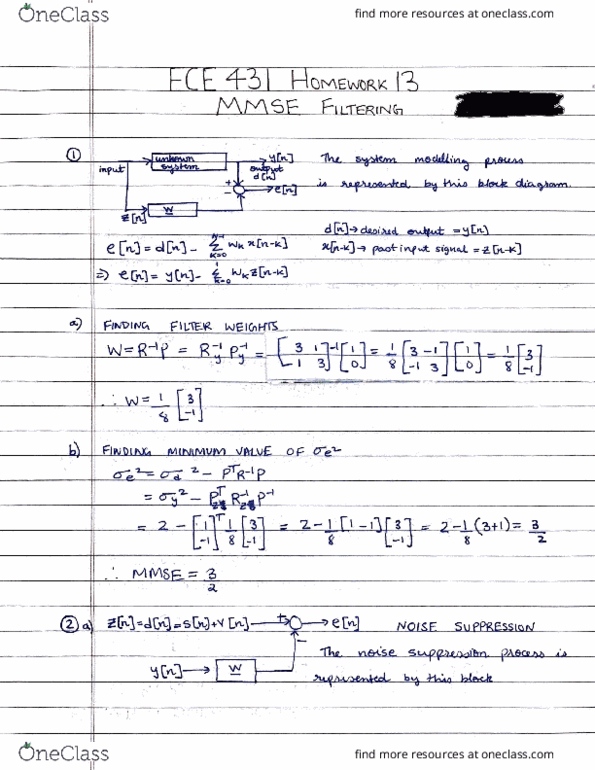 OneClass
find more resources at oneclass.com
ECE 431 HOMEWORK 13
MMSE FILTERING
① input unknown system y[n] output d[n] + - e[n] z[n] w
The system modelling process
is represented by this block diagram.
d[n] → desired output = y[n]
e[n] = d[n] - Σ_{k=0}^{N-1} w_k x[n-k] x[n-k] → past input signal = z[n-k]
⇒ e[n] = y[n] - Σ_{k=0}^{1} w_k z[n-k]
a) FINDING FILTER WEIGHTS
W = R⁻¹P = R_y⁻¹ P_y⁻¹ = [3 1; 1 3]⁻¹ [1; 0] = 1/8 [3 -1; -1 3] [1; 0] = 1/8 [3; -1]
∴ W = 1/8 [3; -1]
b) FINDING MINIMUM VALUE OF σe²
σe² = σd² - PᵀR⁻¹P
= σy² - Pᵀ R⁻¹ P⁻¹
= 2 - [1; -1]ᵀ 1/8 [3; -1] = 2 - 1/8 [1 -1] [3; -1] = 2 - 1/8 (3+1) = 3/2
∴ MMSE = 3/2
② a) z[n] = d[n] = s[n] + v[n] + e[n] NOISE SUPPRESSION
-
The noise suppression process is
y[n] w
represented by this block
OneClass
find more resources at oneclass.com